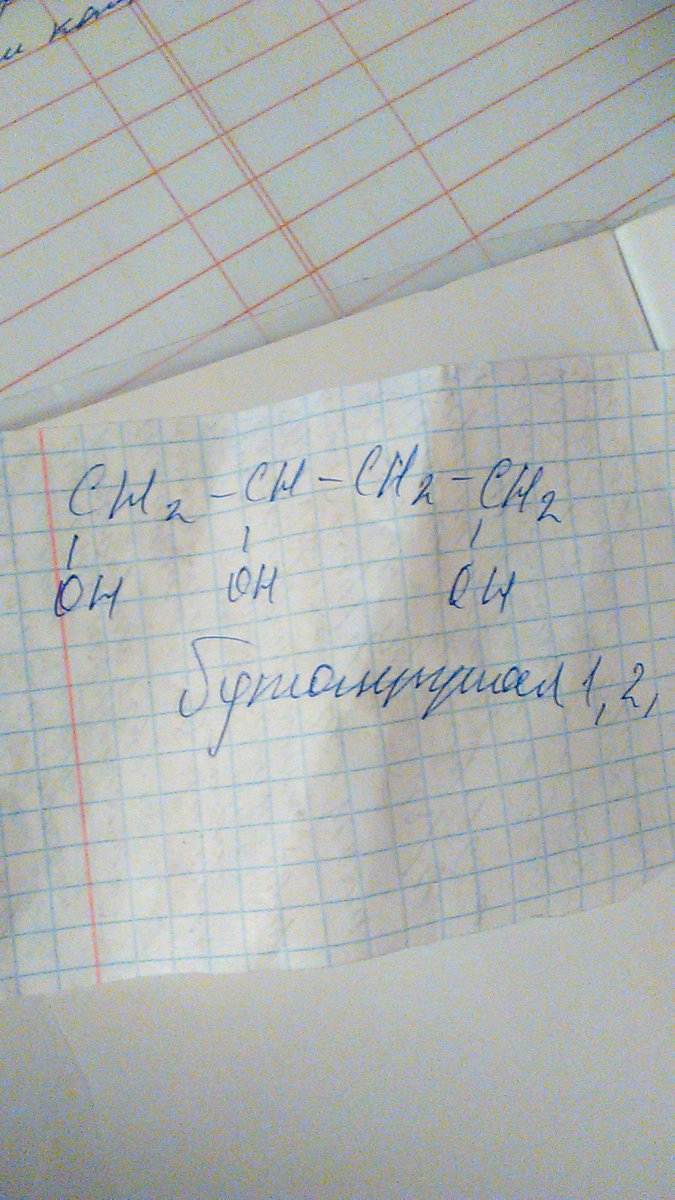 и ка
CH₂ - CH - CH₂ - CH₂
OH OH OH
бутантриол 1, 2,